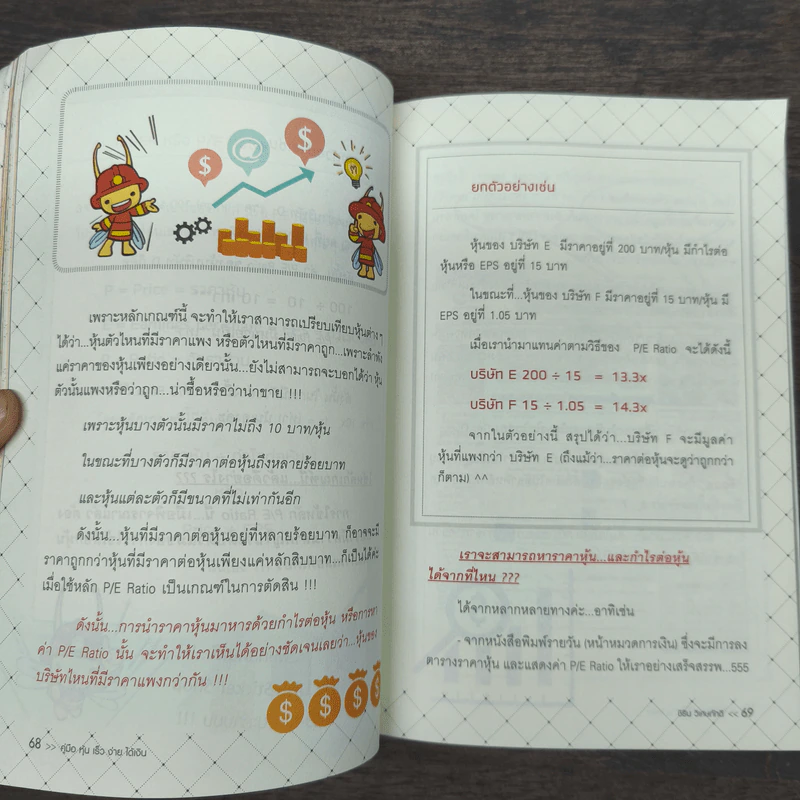 $
@
$
เพราะหลักเกณฑ์นี้ จะทำให้เราสามารถเปรียบเทียบหุ้นต่าง ๆ
ได้ว่า...หุ้นตัวไหนที่มีราคาแพง หรือตัวไหนที่มีราคาถูก...เพราะลำพัง
แค่ราคาของหุ้นเพียงอย่างเดียวนั้น...ยังไม่สามารถจะบอกได้ว่า หุ้น
ตัวนั้นแพงหรือว่าถูก...น่าซื้อหรือว่าน่าขาย !!!
เพราะหุ้นบางตัวนั้นมีราคาไม่ถึง 10 บาท/หุ้น
ในขณะที่บางตัวก็มีราคาต่อหุ้นถึงหลายร้อยบาท
และหุ้นแต่ละตัวก็มีขนาดที่ไม่เท่ากันอีก
ดังนั้น...หุ้นที่มีราคาต่อหุ้นอยู่ที่หลายร้อยบาท ก็อาจจะมี
ราคาถูกกว่าหุ้นที่มีราคาต่อหุ้นเพียงแค่หลักสิบบาท...ก็เป็นได้ค่ะ
เมื่อใช้หลัก P/E Ratio เป็นเกณฑ์ในการตัดสิน !!!
ดังนั้น...การนำราคาหุ้นมาหารด้วยกำไรต่อหุ้น หรือการหา
ค่า P/E Ratio นั้น จะทำให้เราเห็นได้อย่างชัดเจนเลยว่า...หุ้นของ
บริษัทไหนที่มีราคาแพงกว่ากัน !!!
$ $ $ $
68 >> คู่มือ หุ้น เร็ว ง่าย ได้เงิน
ยกตัวอย่างเช่น
หุ้นของ บริษัท E มีราคาอยู่ที่ 200 บาท/หุ้น มีกำไรต่อ
หุ้นหรือ EPS อยู่ที่ 15 บาท
ในขณะที่...หุ้นของ บริษัท F มีราคาอยู่ที่ 15 บาท/หุ้น มี
EPS อยู่ที่ 1.05 บาท
เมื่อเรานำมาแทนค่าตามวิธีของ P/E Ratio จะได้ดังนี้
บริษัท E 200 ÷ 15 = 13.3x
บริษัท F 15 ÷ 1.05 = 14.3x
จากในตัวอย่างนี้ สรุปได้ว่า...บริษัท F จะมีมูลค่า
หุ้นที่แพงกว่า บริษัท E (ถึงแม้ว่า...ราคาต่อหุ้นจะดูว่าถูกกว่า
ก็ตาม) ^^
เราจะสามารถหาราคาหุ้น...และกำไรต่อหุ้น
ได้จากที่ไหน ???
ได้จากหลากหลายทางค่ะ...อาทิเช่น
- จากหนังสือพิมพ์รายวัน (หน้าหมวดการเงิน) ซึ่งจะมีการลง
ตารางราคาหุ้น และแสดงค่า P/E Ratio ให้เราอย่างเสร็จสรรพ...555
<< 69